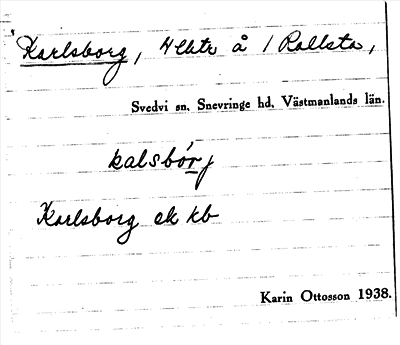 Karlsborg, å 1 Rallsta,
Svedvi sn. Snevringe hd. Västmanlands län.
kalsbórj
Karlsborg ek kb
Karin Ottosson 1938.